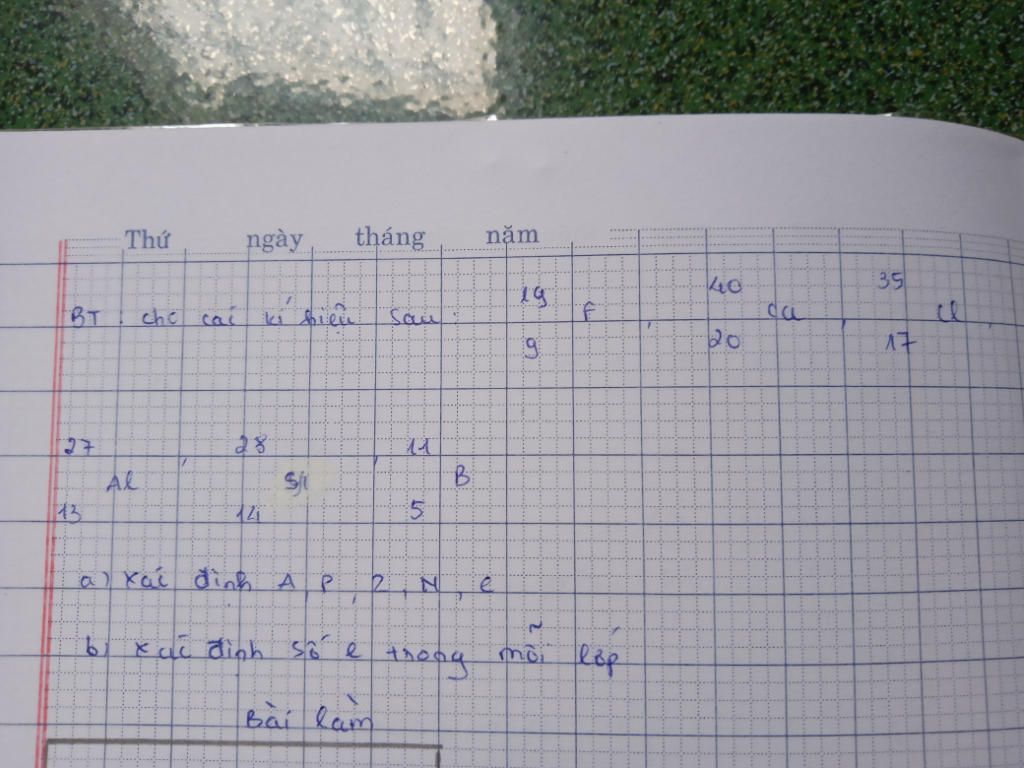 Thứ ngày tháng năm
19 40 35
BT : cho các kí hiệu sau : F , Ca , Cl ,
9 20 17
27 , 28 , 11
Al Si B
13 14 5
a) xác định A, P, Z, N, e
b) xác định số e trong mỗi lớp
Bài làm